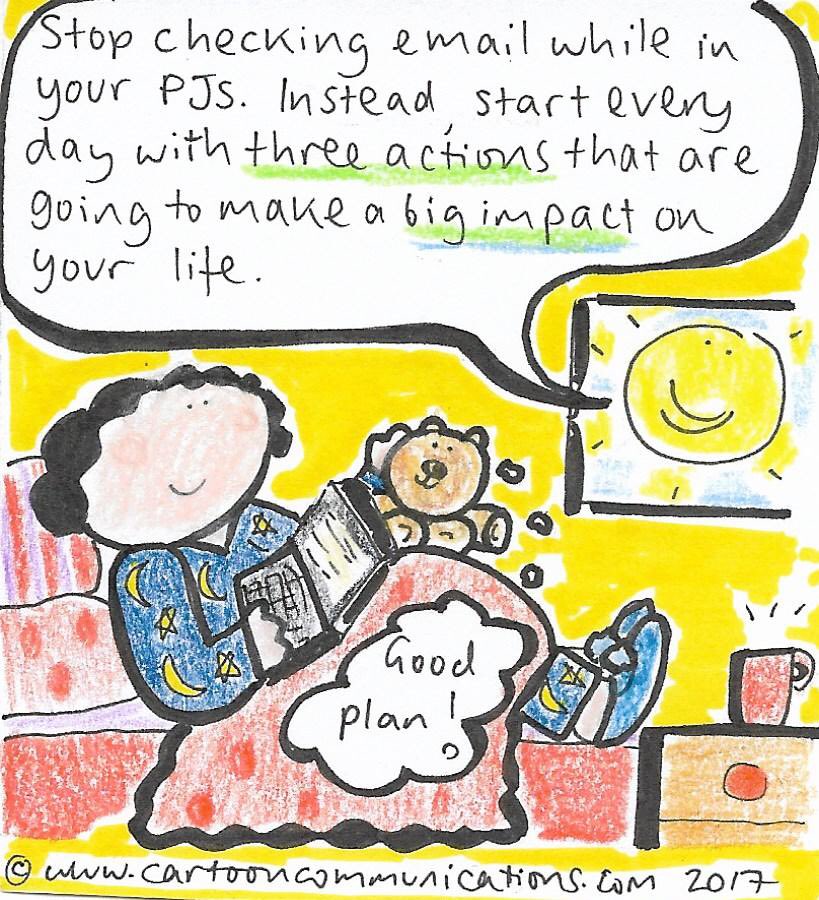 Stop checking email while in
your PJs. Instead, start every
day with three actions that are
going to make a big impact on
your life.
Good
plan!
© www.cartooncommunications.com 2017